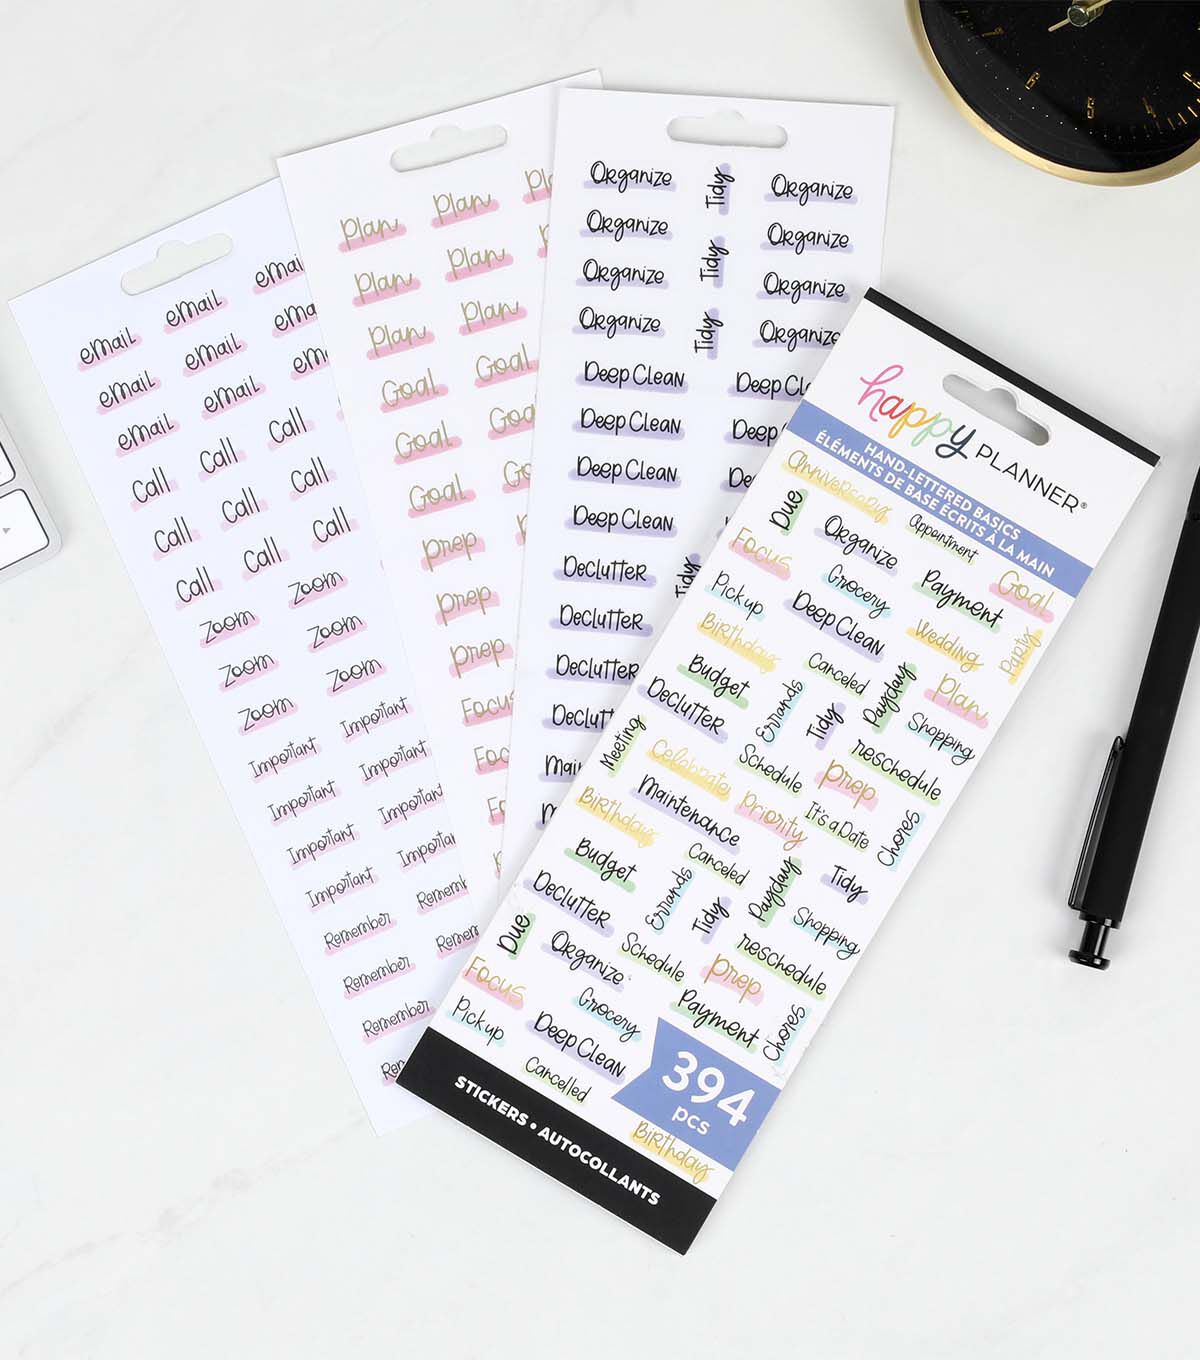 email email emai
email email ema
email email em
Call Call Call
Call Call Call
Call Call Call
Zoom Zoom
Zoom Zoom
Zoom Zoom
Important Important
Important Important
Important Important
Important Important
Remember Remem
Remember Remem
Remember
Re
Plan Plan Pl
Plan Plan
Plan Plan
Goal Goal
Goal Goa
Goal Go
Prep
Prep
Prep
Focus
Foc
Organize Tidy Organize
Organize Organize
Organize Tidy Organize
Organize Tidy Organize
Deep Clean Deep Cl
Deep Clean Deep
Deep Clean De
Deep Clean
Declutter Tidy
Declutter
Declutter
Declut
Main
M
happy PLANNER®
HAND-LETTERED BASICS
ÉLÉMENTS DE BASE ÉCRITS À LA MAIN
Anniversary
Due Organize Appointment
Focus Grocery Payment Goal
Pick up Deep Clean Wedding Party
Birthday Canceled Payday Plan
Budget Errands Tidy Shopping
Declutter Schedule reschedule
Meeting Celebrate Prep
Maintenance Priority It's a Date Chores
Birthday Canceled Payday Tidy
Budget Errands Tidy Shopping
Declutter Schedule reschedule
Due Organize Prep
Focus Grocery Payment Chores
Pick up Deep Clean
Cancelled
394
pcs
Birthday
STICKERS • AUTOCOLLANTS
6 5 4